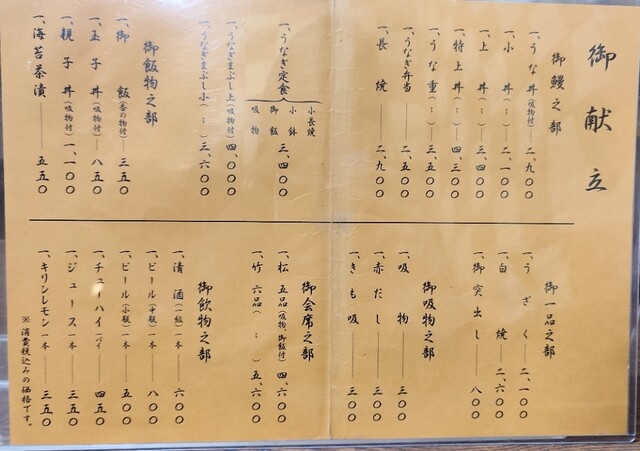 御献立
御鰻之部
一、うな丼(吸物付)二、九〇〇
一、小丼(〃)二、一〇〇
一、上丼(〃)三、四〇〇
一、特上丼(〃)四、三〇〇
一、うな重(〃)三、五〇〇
一、うなぎ弁当 二、五〇〇
一、長焼 二、九〇〇
一、うなぎ定食 小長焼 小鉢 御飯 吸物 三、四〇〇
一、うなぎまぶし上(吸物付)四、〇〇〇
一、うなぎまぶし小(〃)三、六〇〇
御飯物之部
一、御飯(香の物付)三五〇
一、玉子丼(吸物付)八五〇
一、親子丼(吸物付)一、一〇〇
一、海苔茶漬 五五〇
御一品之部
一、うざく 二、一〇〇
一、白焼 二、六〇〇
一、御突出し 八〇〇
御吸物之部
一、吸物 三〇〇
一、赤だし 三〇〇
一、きも吸 三〇〇
御会席之部
一、松 五品(吸物、御飯付)四、六〇〇
一、竹 六品(〃)五、六〇〇
御飲物之部
一、清酒(二級)一本 六〇〇
一、ビール(中瓶)一本 八〇〇
一、ビール(小瓶)一本 五〇〇
一、チューハイ一パイ 四五〇
一、ジュース一本 三五〇
一、キリンレモン一本 三五〇
※消費税込みの価格です。